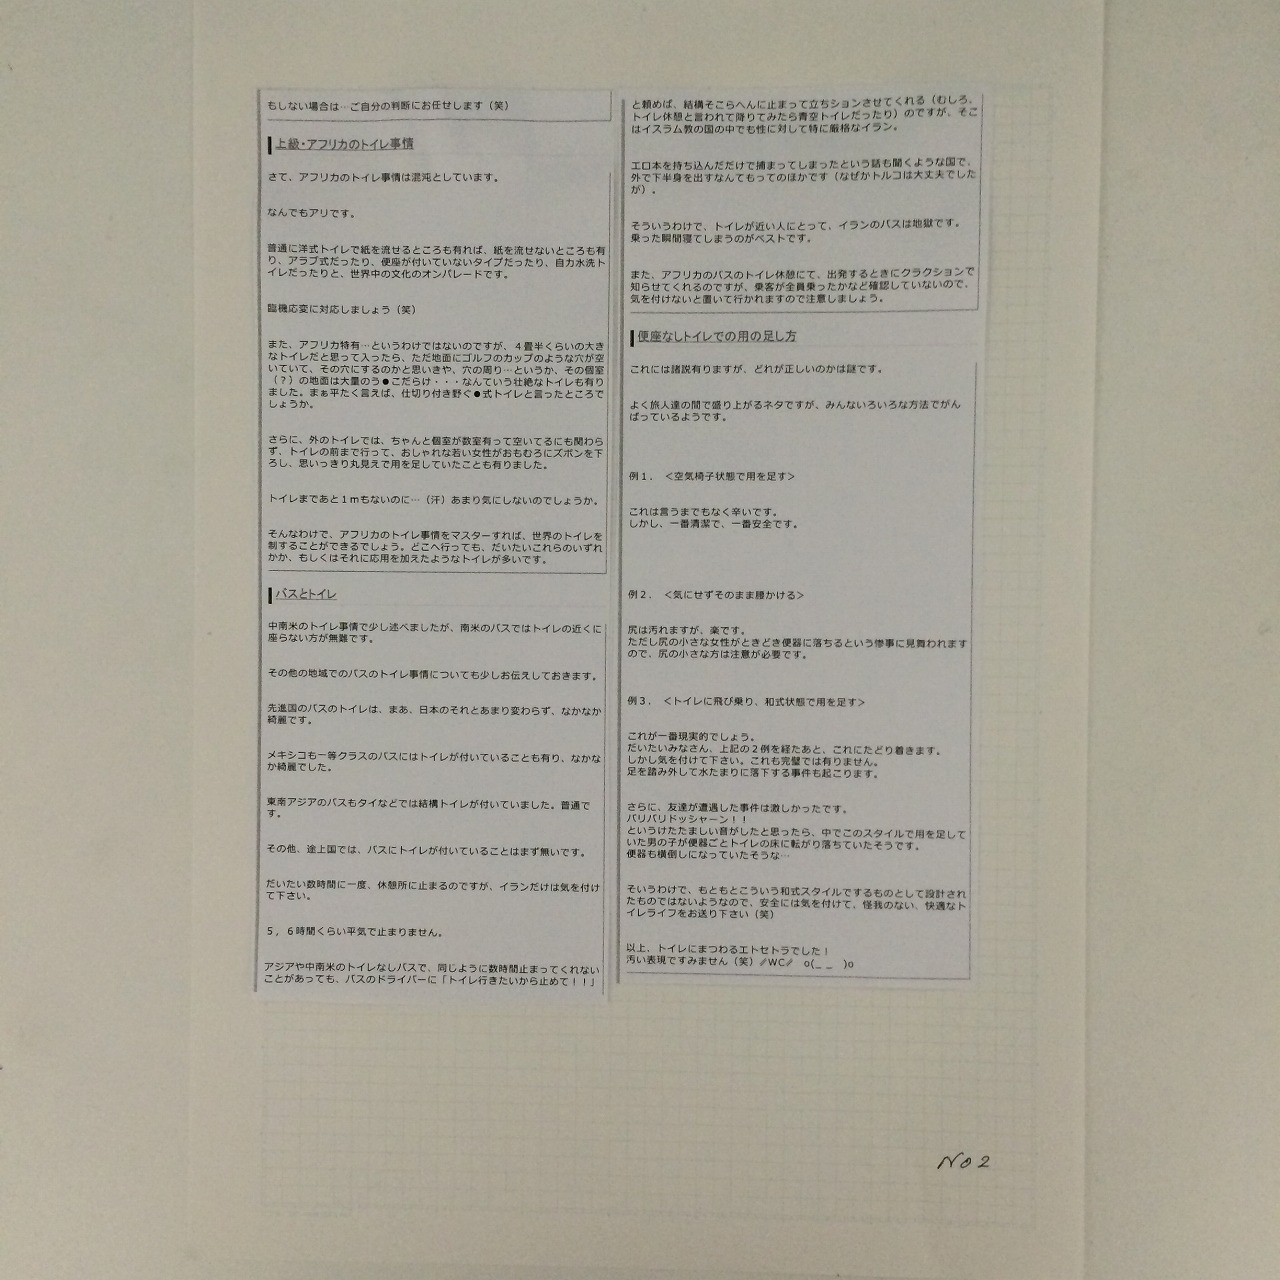 もしない場合は…ご自分の判断にお任せします（笑）
上級・アフリカのトイレ事情
さて、アフリカのトイレ事情は混沌としています。
なんでもアリです。
普通に洋式トイレで紙を流せるところも有れば、紙を流せないところも有
り、アラブ式だったり、便座が付いていないタイプだったり、自力水洗ト
イレだったりと、世界中の文化のオンパレードです。
臨機応変に対応しましょう（笑）
また、アフリカ特有…というわけではないのですが、４畳半くらいの大き
なトイレだと思って入ったら、ただ地面にゴルフのカップのような穴が空
いていて、その穴にするのかと思いきや、穴の周り…というか、その個室
（？）の地面は大量のう●こだらけ・・・なんていう壮絶なトイレも有り
ました。まぁ平たく言えば、仕切り付き野ぐ●式トイレと言ったところで
しょうか。
さらに、外のトイレでは、ちゃんと個室が数室有って空いてるにも関わら
ず、トイレの前まで行って、おしゃれな若い女性がおもむろにズボンを下
ろし、思いっきり丸見えで用を足していたことも有りました。
トイレまであと１ｍもないのに…（汗）あまり気にしないのでしょうか。
そんなわけで、アフリカのトイレ事情をマスターすれば、世界のトイレを
制することができるでしょう。どこへ行っても、だいたいこれらのいずれ
かか、もしくはそれに応用を加えたようなトイレが多いです。
バスとトイレ
中南米のトイレ事情で少し述べましたが、南米のバスではトイレの近くに
座らない方が無難です。
その他の地域でのバスのトイレ事情についても少しお伝えしておきます。
先進国のバスのトイレは、まあ、日本のそれとあまり変わらず、なかなか
綺麗です。
メキシコも一等クラスのバスにはトイレが付いていることも有り、なかな
か綺麗でした。
東南アジアのバスもタイなどでは結構トイレが付いていました。普通で
す。
その他、途上国では、バスにトイレが付いていることはまず無いです。
だいたい数時間に一度、休憩所に止まるのですが、イランだけは気を付け
て下さい。
５，６時間くらい平気で止まりません。
アジアや中南米のトイレなしバスで、同じように数時間止まってくれない
ことがあっても、バスのドライバーに「トイレ行きたいから止めて！！」
と頼めば、結構そこらへんに止まって立ちションさせてくれる（むしろ、
トイレ休憩と言われて降りてみたら青空トイレだったり）のですが、そこ
はイスラム教の国の中でも性に対して特に厳格なイラン。
エロ本を持ち込んだだけで捕まってしまったという話も聞くような国で、
外で下半身を出すなんてもってのほかです（なぜかトルコは大丈夫でした
が）。
そういうわけで、トイレが近い人にとって、イランのバスは地獄です。
乗った瞬間寝てしまうのがベストです。
また、アフリカのバスのトイレ休憩にて、出発するときにクラクションで
知らせてくれるのですが、乗客が全員乗ったかなど確認していないので、
気を付けないと置いて行かれますので注意しましょう。
便座なしトイレでの用の足し方
これには諸説有りますが、どれが正しいのかは謎です。
よく旅人達の間で盛り上がるネタですが、みんないろいろな方法でがん
ばっているようです。
例１．　＜空気椅子状態で用を足す＞
これは言うまでもなく辛いです。
しかし、一番清潔で、一番安全です。
例２．　＜気にせずそのまま腰かける＞
尻は汚れますが、楽です。
ただし尻の小さな女性がときどき便器に落ちるという惨事に見舞われます
ので、尻の小さな方は注意が必要です。
例３．　＜トイレに飛び乗り、和式状態で用を足す＞
これが一番現実的でしょう。
だいたいみなさん、上記の２例を経たあと、これにたどり着きます。
しかし気を付けて下さい。これも完璧では有りません。
足を踏み外して水たまりに落下する事件も起こります。
さらに、友達が遭遇した事件は激しかったです。
バリバリドッシャーン！！
というけたたましい音がしたと思ったら、中でこのスタイルで用を足して
いた男の子が便器ごとトイレの床に転がり落ちていたそうです。
便器も横倒しになっていたそうな…
そいうわけで、もともとこういう和式スタイルでするものとして設計され
たものではないようなので、安全には気を付けて、怪我のない、快適なト
イレライフをお送り下さい（笑）
以上、トイレにまつわるエトセトラでした！
汚い表現ですみません（笑）〃WC〃　o(_ _　)o
NO 2